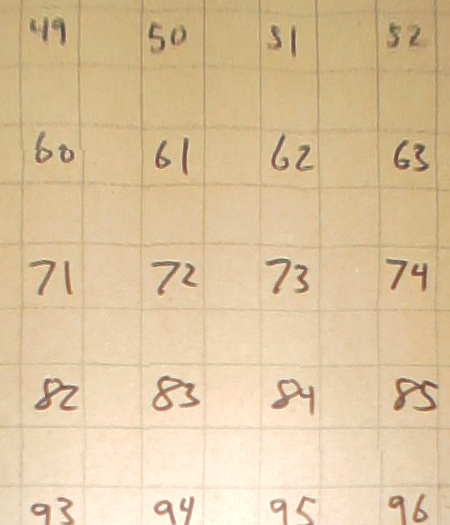 49 50 51 52
60 61 62 63
71 72 73 74
82 83 84 85
93 94 95 96